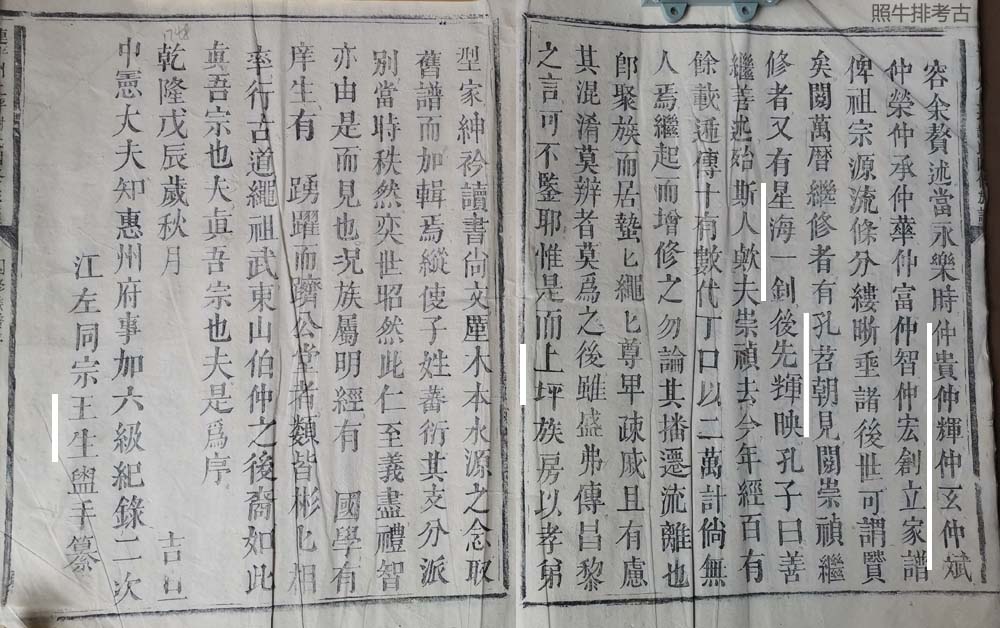 照牛排考古
容余贅述當永樂時仲貴仲輝仲玄仲斌
仲榮仲承仲華仲富仲智仲宏創立家譜
俾祖宗源流條分縷晰垂諸後世可謂賢
矣閱萬曆繼修者有孔苕朝見閱崇禎繼
修者又有星海一釗後先輝映孔子曰善
繼善述殆斯人歟夫崇禎去今年經百有
餘載逓傳十有數代丁口以二萬計倘無
人焉繼起而增修之勿論其播遷流離也
即聚族而居蟄匕繩匕尊卑疎戚且有慮
其混淆莫辨者莫爲之後雖盛弗傳昌黎
之言可不鑒耶惟是而上坪族房以孝弟
型家紳衿讀書尙文塵木本水源之念取
舊譜而加輯焉縱使子姓蕃衍其支分派
別當時秩然奕世昭然此仁至義盡禮智
亦由是而見也况族屬明經有 國學有
庠生有 踴躍而躋公堂者類皆彬匕相
率行古道繩祖武東山伯仲之後裔如此
眞吾宗也夫眞吾宗也夫是爲序
乾隆戊辰歲秋月 吉旦
中憲大夫知惠州府事加六級紀錄二次
江左同宗王生盥手纂